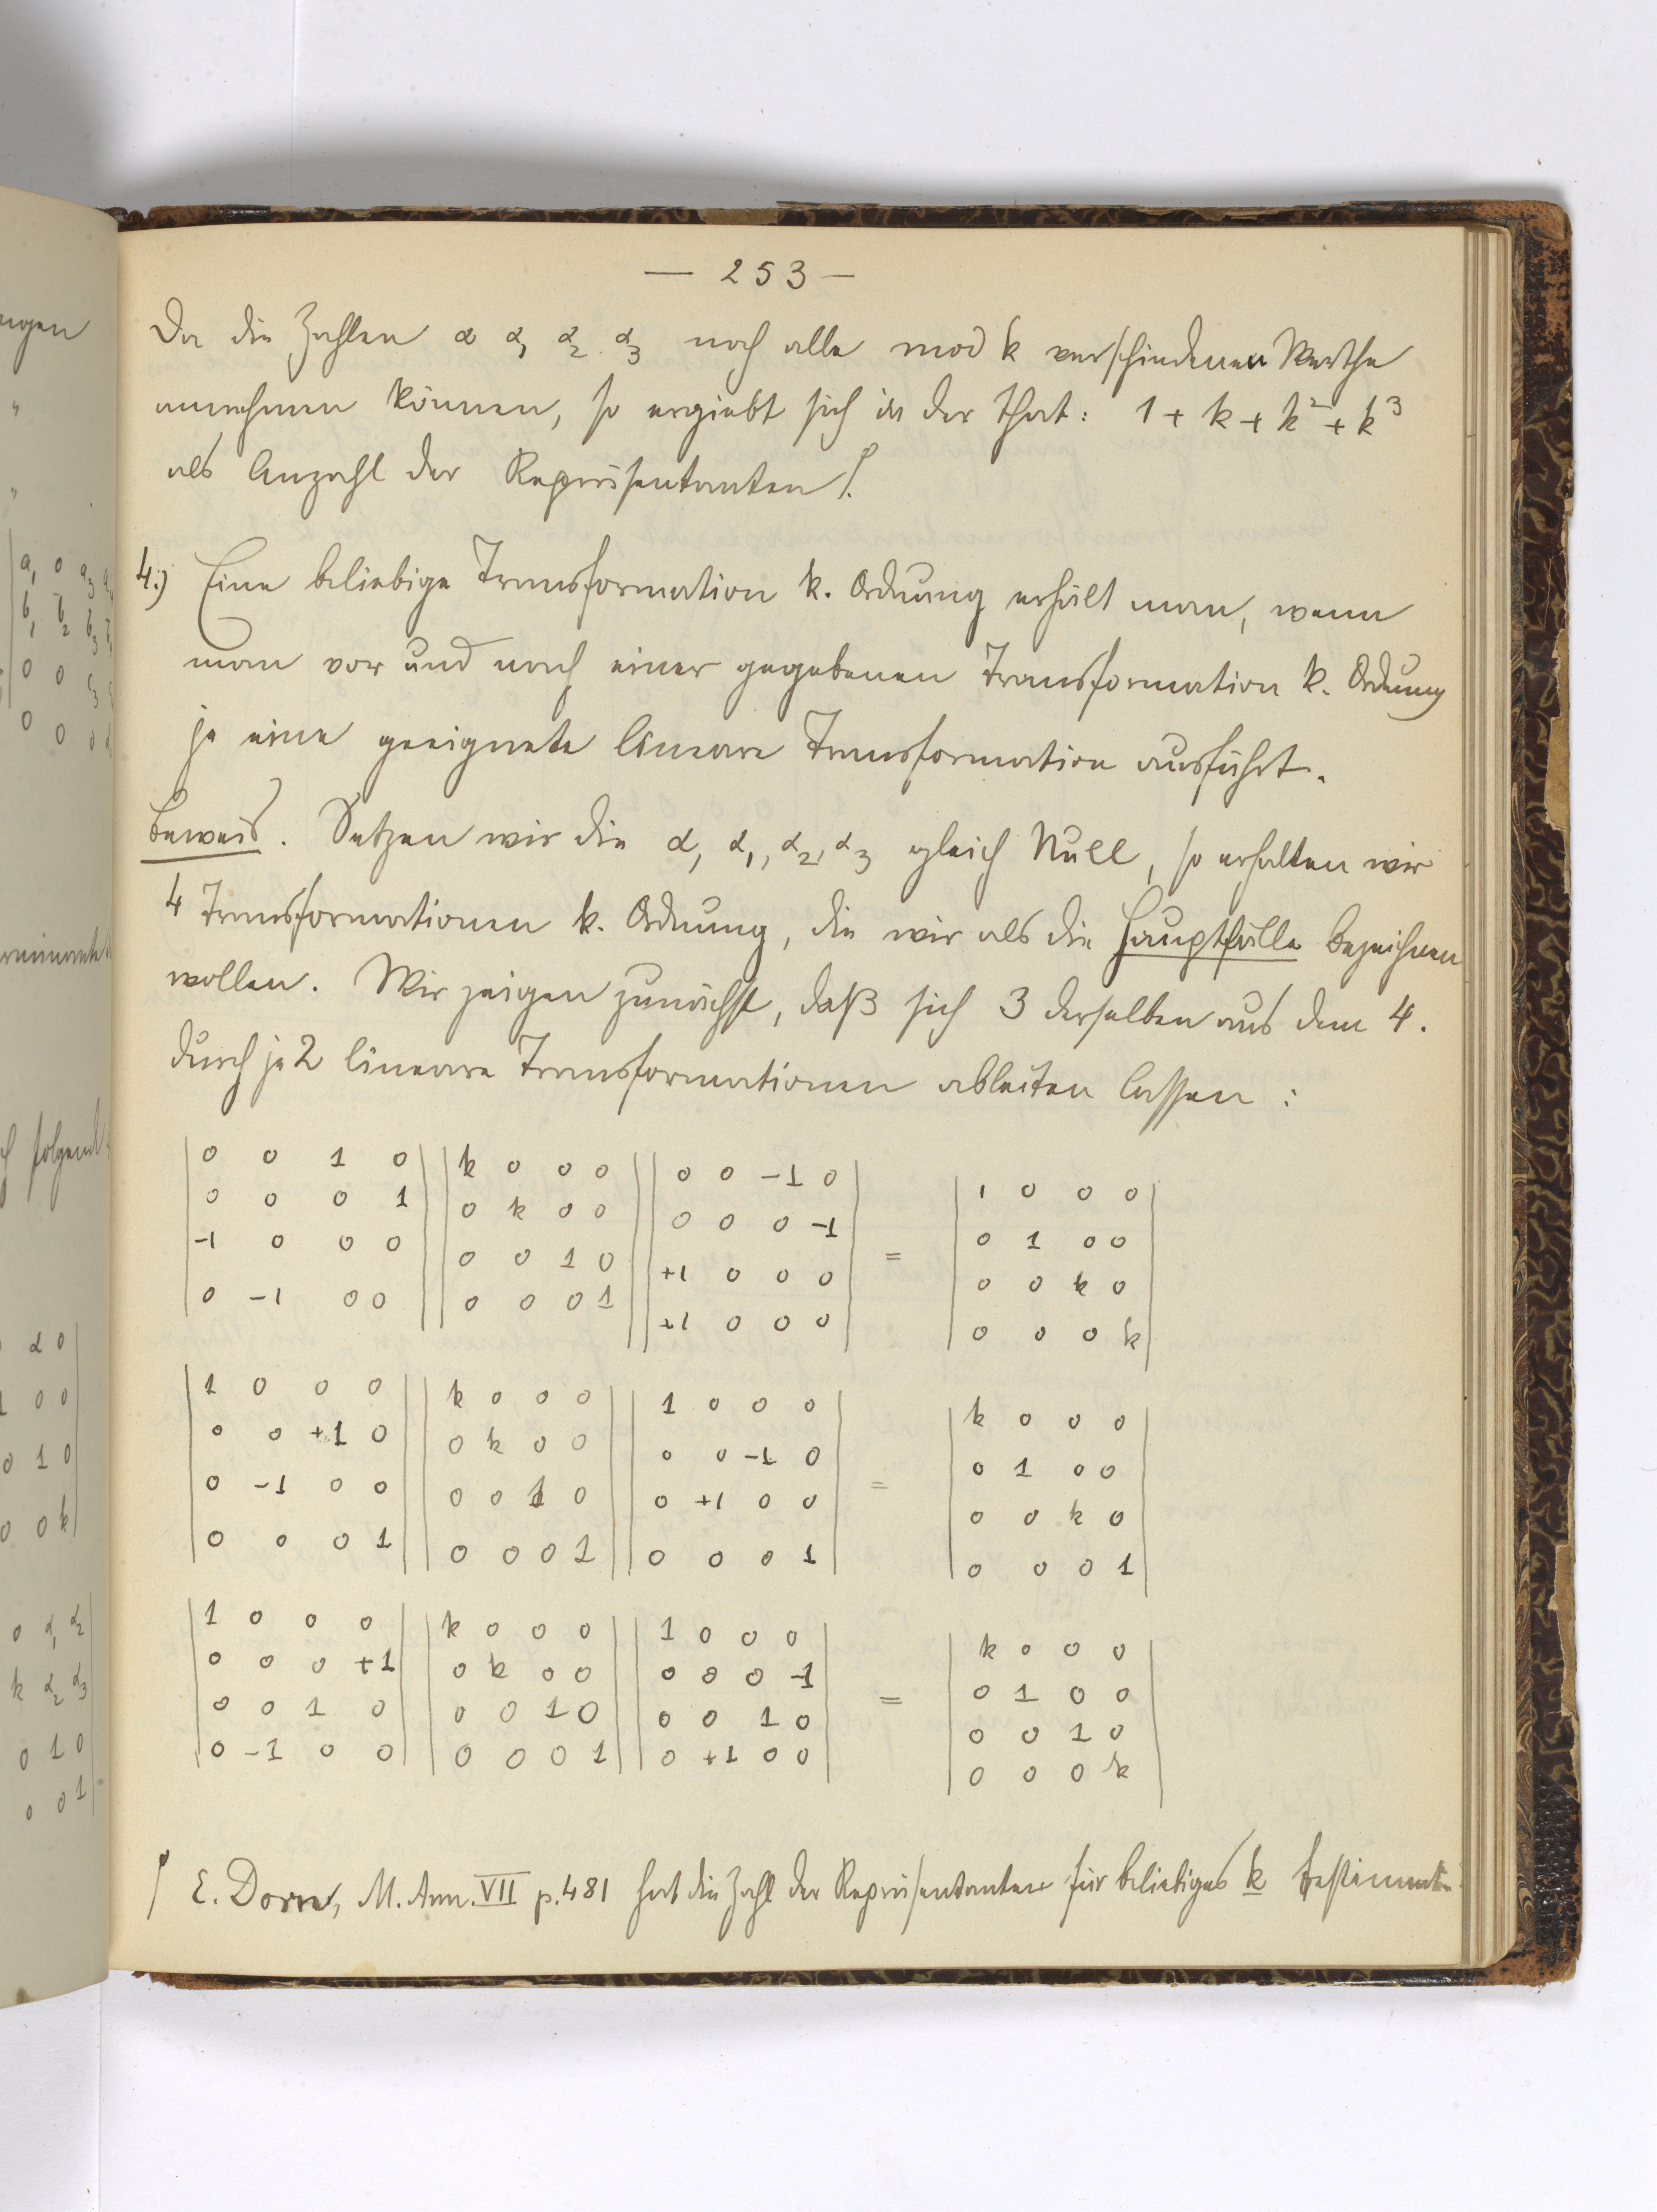 — 253 —
Da die Zahlen α α₁ α₂ α₃ noch alle mod k verschiedenen Werthe
annehmen können, so ergiebt sich in der That: 1 + k + k² + k³
als Anzahl der Repräsentanten ſ.
4.) Eine beliebige Transformation k. Ordnung erhält man, wenn
man vor und nach einer gegebenen Transformation k. Ordnung
je eine geeignete lineare Transformation ausführt.
Beweis. Setzen wir die α, α₁, α₂, α₃ gleich Null, so erhalten wir
4 Transformationen k. Ordnung, die wir als die Hauptfälle bezeichnen
wollen. Wir zeigen zunächst, daß sich 3 derselben aus dem 4.
durch je 2 lineare Transformationen ableiten lassen:
| 0 0 1 0 | | k 0 0 0 | | 0 0 -1 0 | | 1 0 0 0 |
| 0 0 0 1 | | 0 k 0 0 | | 0 0 0 -1 | | 0 1 0 0 |
| -1 0 0 0 | | 0 0 1 0 | | +1 0 0 0 | = | 0 0 k 0 |
| 0 -1 0 0 | | 0 0 0 1 | | +1 0 0 0 | | 0 0 0 k |
| 1 0 0 0 | | k 0 0 0 | | 1 0 0 0 | | k 0 0 0 |
| 0 0 +1 0 | | 0 k 0 0 | | 0 0 -1 0 | | 0 1 0 0 |
| 0 -1 0 0 | | 0 0 1 0 | | 0 +1 0 0 | = | 0 0 k 0 |
| 0 0 0 1 | | 0 0 0 1 | | 0 0 0 1 | | 0 0 0 1 |
| 1 0 0 0 | | k 0 0 0 | | 1 0 0 0 | | k 0 0 0 |
| 0 0 0 +1 | | 0 k 0 0 | | 0 0 0 -1 | | 0 1 0 0 |
| 0 0 1 0 | | 0 0 1 0 | | 0 0 1 0 | = | 0 0 1 0 |
| 0 -1 0 0 | | 0 0 0 1 | | 0 +1 0 0 | | 0 0 0 k |
ſ E. Dorn, M. Ann. VII p. 481 hat die Zahl der Repräsentanten für beliebiges k bestimmt